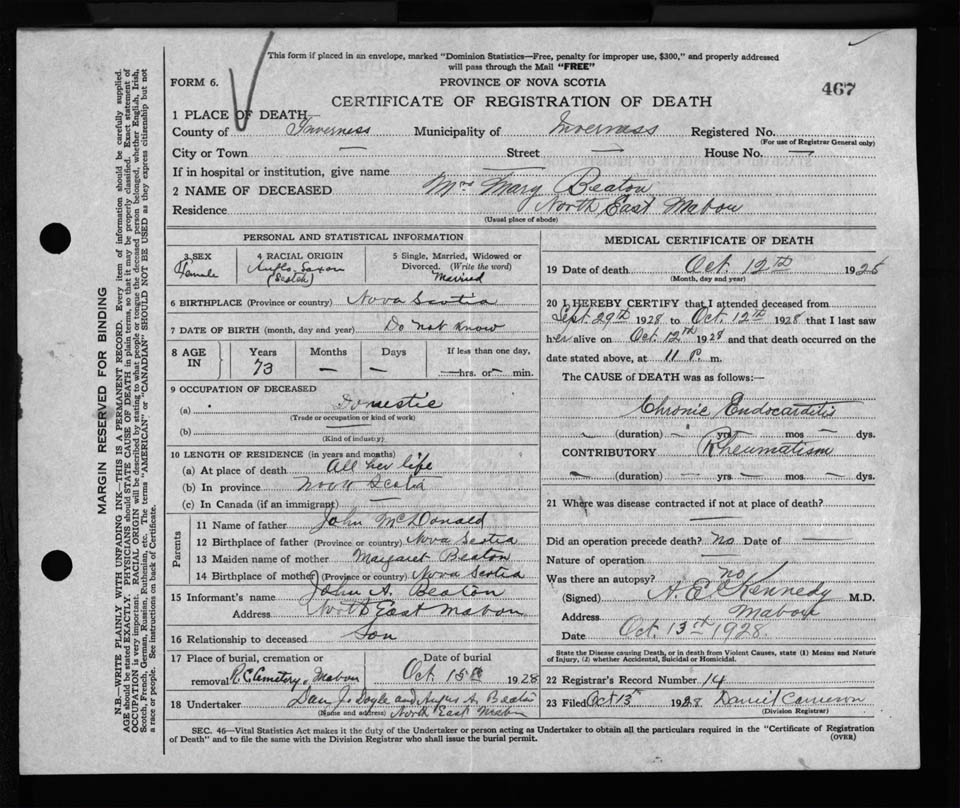 This form if placed in an envelope, marked "Dominion Statistics—Free, penalty for improper use, $300," and properly addressed
will pass through the Mail "FREE"
FORM 6. PROVINCE OF NOVA SCOTIA 467
CERTIFICATE OF REGISTRATION OF DEATH
1 PLACE OF DEATH
County of Inverness Municipality of Inverness Registered No.
(For use of Registrar General only)
City or Town — Street — House No. —
If in hospital or institution, give name —
2 NAME OF DECEASED Mrs Mary Beaton
Residence North East Mabou
(Usual place of abode)
PERSONAL AND STATISTICAL INFORMATION
3 SEX Female
4 RACIAL ORIGIN Anglo Saxon (Scotch)
5 Single, Married, Widowed or Divorced. (Write the word) Married
6 BIRTHPLACE (Province or country) Nova Scotia
7 DATE OF BIRTH (month, day and year) Do not know
8 AGE IN Years 73 Months — Days — If less than one day, — hrs. or — min.
9 OCCUPATION OF DECEASED
(a) Domestic
(Trade or occupation or kind of work)
(b)
(Kind of industry)
10 LENGTH OF RESIDENCE (in years and months)
(a) At place of death All her life
(b) In province Nova Scotia
(c) In Canada (if an immigrant) —
Parents
11 Name of father John McDonald
12 Birthplace of father (Province or country) Nova Scotia
13 Maiden name of mother Margaret Beaton
14 Birthplace of mother (Province or country) Nova Scotia
15 Informant's name John A. Beaton
Address North East Mabou
16 Relationship to deceased Son
17 Place of burial, cremation or removal R.C. Cemetery, Mabou Date of burial Oct 15th 1928
18 Undertaker Dan J. Doyle and Angus A. Beaton
(Name and address) North East Mabou
MEDICAL CERTIFICATE OF DEATH
19 Date of death Oct. 12th 1928
(Month, day and year)
20 I HEREBY CERTIFY that I attended deceased from
Sept. 29th 1928 to Oct. 12th 1928 that I last saw
her alive on Oct. 12th 1928 and that death occurred on the
date stated above, at 11 P. m.
The CAUSE of DEATH was as follows:—
Chronic Endocarditis
— (duration) — yrs — mos — dys.
CONTRIBUTORY Rheumatism
— (duration) — yrs — mos — dys.
21 Where was disease contracted if not at place of death?
—
Did an operation precede death? no Date of —
Nature of operation —
Was there an autopsy? no
(Signed) A. E. Kennedy M.D.
Address Mabou
Date Oct. 13th 1928.
State the Disease causing Death, or in death from Violent Causes, state (1) Means and Nature
of Injury, (2) whether Accidental, Suicidal or Homicidal.
22 Registrar's Record Number 14
23 Filed Oct 15 1928 Daniel Cameron
(Division Registrar)
SEC. 46—Vital Statistics Act makes it the duty of the Undertaker or person acting as Undertaker to obtain all the particulars required in the "Certificate of Registration
of Death" and to file the same with the Division Registrar who shall issue the burial permit. (OVER)
MARGIN RESERVED FOR BINDING
N.B.—WRITE PLAINLY WITH UNFADING INK—THIS IS A PERMANENT RECORD. Every item of information should be carefully supplied.
AGE should be stated EXACTLY. PHYSICIANS should STATE CAUSE OF DEATH in plain terms, so that it may be properly classified. Exact statement of
OCCUPATION is very important. RACIAL ORIGIN will be described by stating to what people or tongue the deceased person belonged, whether English, Irish,
Scotch, French, German, Russian, Ruthenian, etc. The terms "AMERICAN" or "CANADIAN" SHOULD NOT BE USED as they express citizenship but not
a race or people. See instructions on back of Certificate.